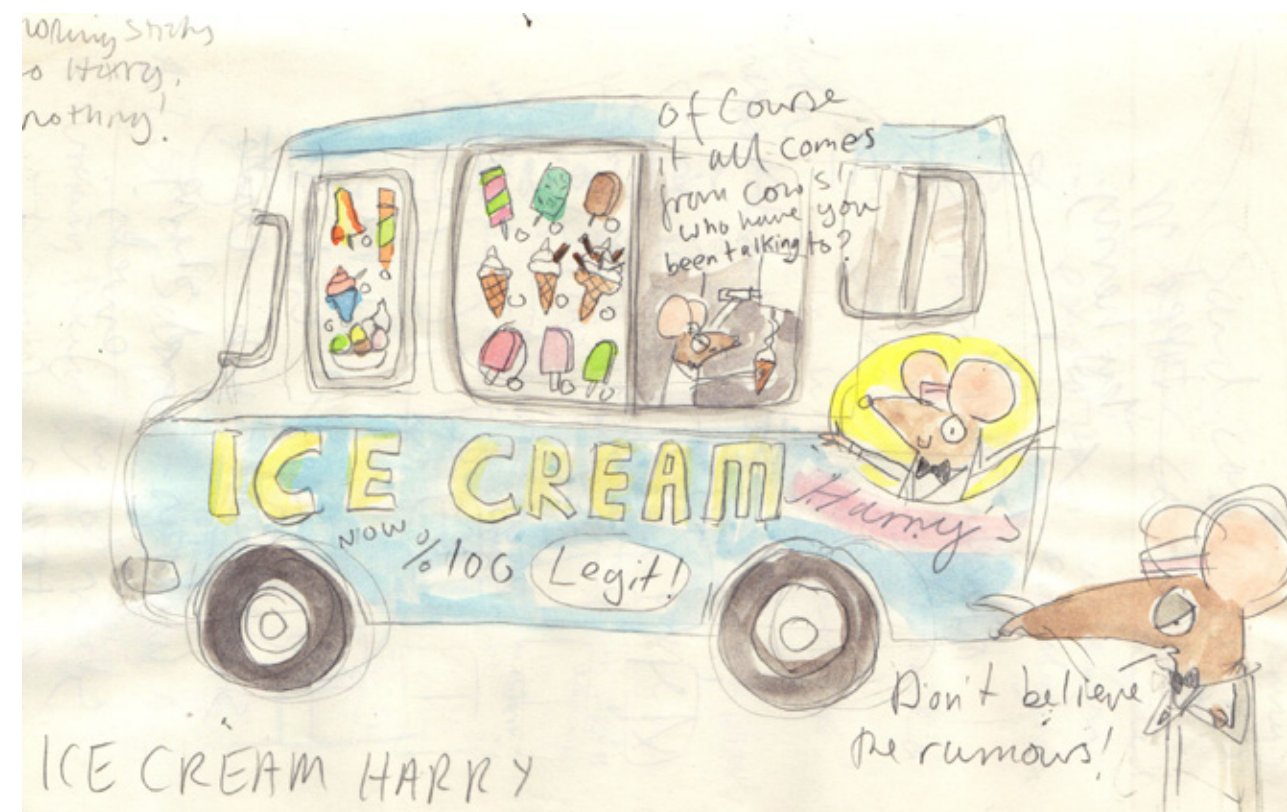 Harry,
nothing!
of Course
it all comes
from cows!
who have you
been talking to?
ICE CREAM
Harry's
NOW %100 Legit!
Don't believe
the rumours!
ICE CREAM HARRY